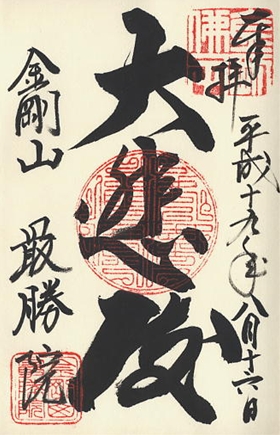 奉拝 平成十九年八月十六日
大悲殿
金剛山 最勝院